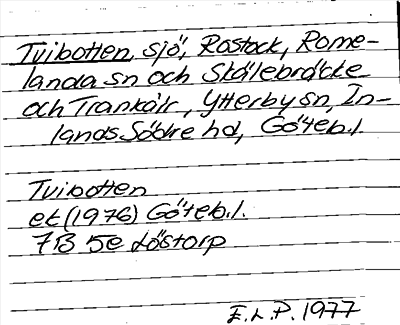 Tvibotten, sjö, Rastock, Rome-
landa sn och Skälebräcke
och Trankärr, Ytterby sn, In-
lands Södre hd, Göteb.l.
Tvibotten
ek (1976) Göteb.l.
7B 5e Löstorp
E.L.P. 1977